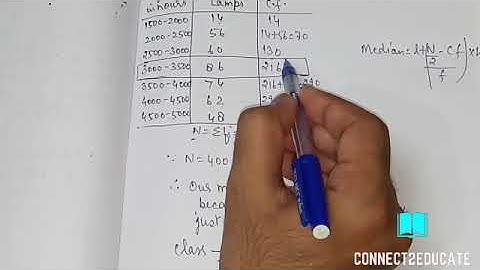 in hours Lamps C.f.
1500-2000 14 14
2000-2500 56 14+56=70
2500-3000 60 130
3000-3500 86 216
3500-4000 74 216+
4000-4500 62
4500-5000 48
N=Σf
∴ N=400
∴ Our m
beca
just
class
Median = l+
N/2 - Cf
f
CONNECT2EDUCATE